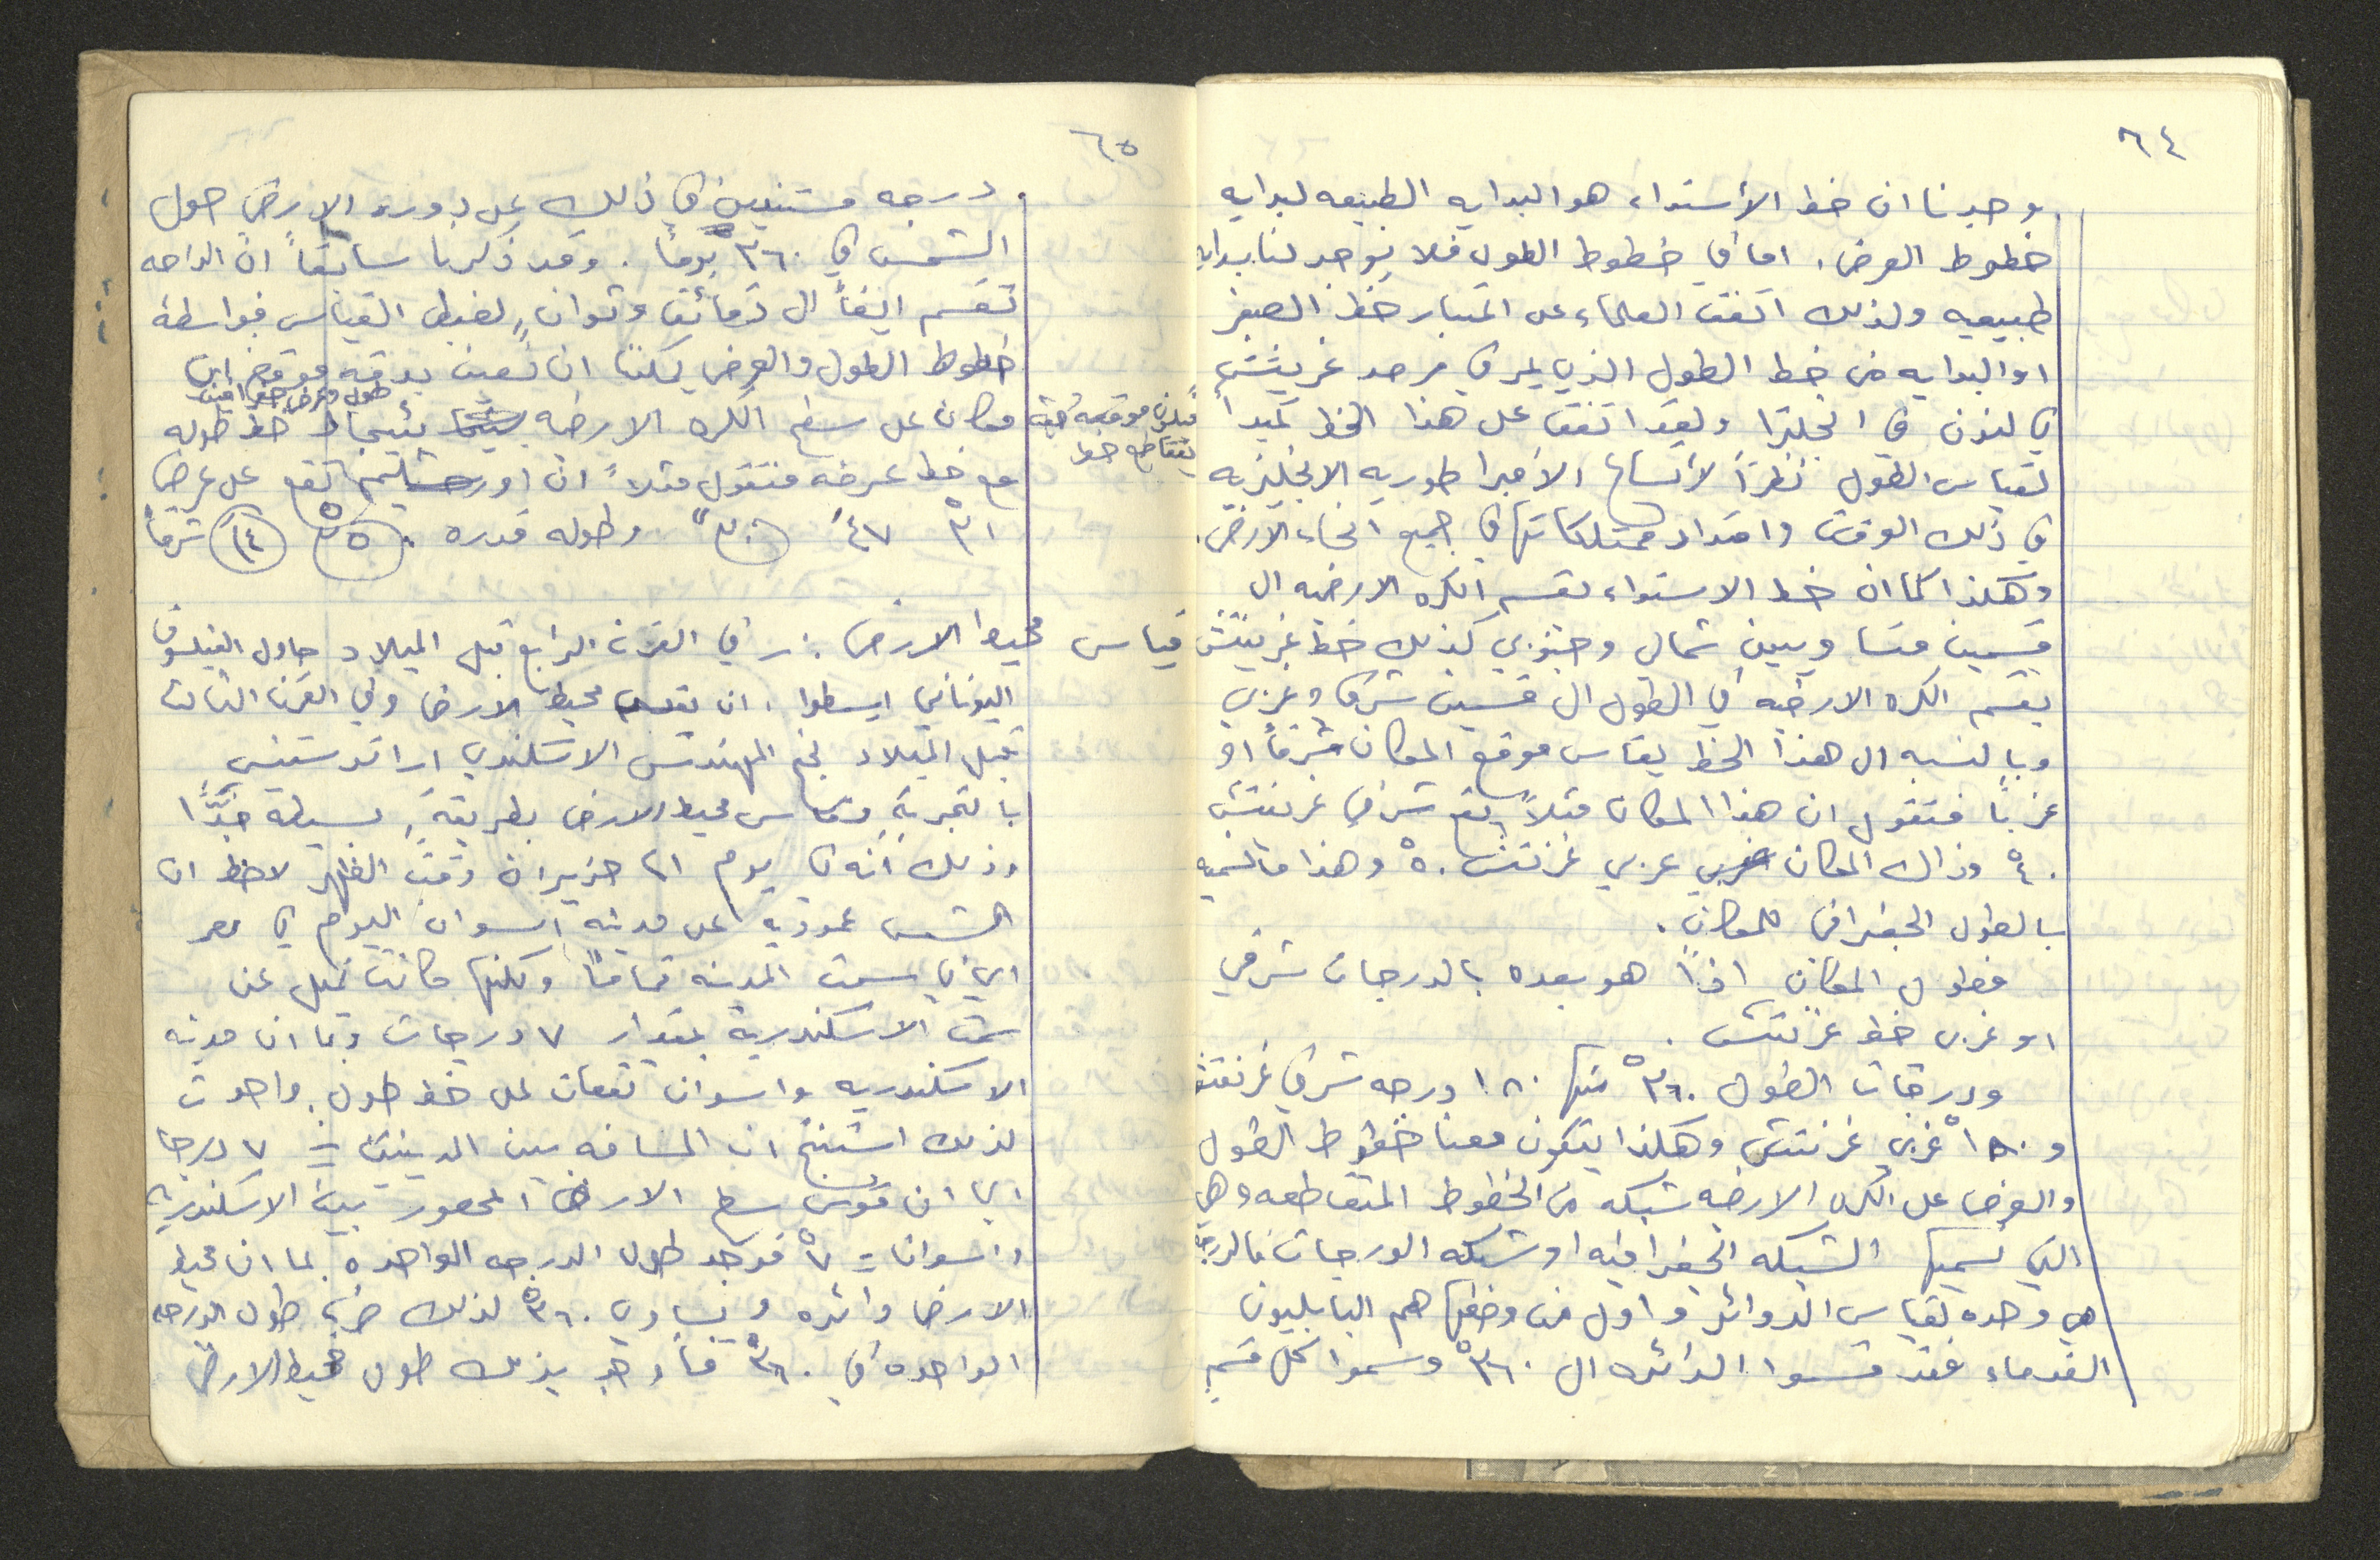 ٦٤
وجدنا ان خط الأستواء هو البدايه الطبيعه لبدايه
خطوط العرض . اما في خطوط الطول فلا يوجد لنا بدايه
طبيعيه ولذلك اتفق العلماء على اعتبار خط الصفر
او البدايه من خط الطول الذي يمر في مرصد غرينتش
في لندن في انجلترا ولقد اتفق على هذا الخط كمبدأ
لقياس الطول نظراً لأتساع الامبراطوريه الانجليزيه
في ذلك الوقت وامتداد ممتلكاتها في جميع انحاء الارض .
وهكذا كما ان خط الاستواء يقسم الكره الارضيه الى
قسمين متساويين شمالي وجنوبي كذلك خط غرينتش
يقسم الكره الارضيه في الطول الى قسمين شرقي وغربي
وبالنسبه الى هذا الخط يقاس موقع المكان شرقاً او
غرباً فنقول ان هذا المكان مثلاً يقع شرقي غرنتش
٤٠° وذاك المكان غربي غرنتش ٥٠° وهذا ما نسميه
بالطول الجغرافي للمكان .
فطول المكان اذاً هو بعده بالدرجات شرقي
او غربي خط غرنتش .
ودرجات الطول ٣٦٠° منها ١٨٠ درجه شرقي غرنتش
و ١٨٠° غربي غرنتش وهكذا يتكون معنا خطوط الطول
والعرض على الكره الارضيه شبكه من الخطوط المتقاطعه وهي
التي نسميها الشبكه الجغرافيه او شبكه الدرجات فالدرجه
هي وحده لقياس الدوائر و اول من وضعها هم البابليون
القدماء فقد قسموا الدائره الى ٣٦٠° وسموا كل قسم
٦٥
درجه مستندين في ذلك على دورة الارض حول
الشمس في ٣٦٠ يوماً . وقد ذكرنا سابقاً ان الدرجه
تقسم ايضاً الى دقائق وثوانٍ لضبط القياس فبواسطة
خطوط الطول والعرض يمكننا ان نعين بدقه موقع اي
طول وعرض
مكان على سطح الكره الارضيه بأيجاد خط طوله
يتقاطع خط
مع خط عرضه فنقول مثلاً ان اورشليم تقع على عرض
٣١° ٤٧′ ٣٠″ وطوله قدره ٣٥° ١٤ شرقاً
قياس محيط الارض :- في القرن الرابع قبل الميلاد حاول الفيلسوف
اليوناني ارسطوا ، ان يقيس محيط الارض وفي القرن الثالث
قبل الميلاد نجح المهندس الاسكندري اراتوستنيس
بالتجربةِ وقاس محيط الارض بطريقةٍ بسيطه جدًّا
وذلك انه في يوم ٢١ حزيران وقت الظهر لاحظ ان
الشمس عموديه على مدينه اسوان اليوم في مصر
اي في سمت المدينه تماماً ولكنها كانت تميل عن
سمت الاسكندرية بمقدار ٧ درجات وبما ان مدينه
الاسكندريه واسوان تقعان على خط طول واحد
لذلك استنتج ان المسافه بين المدينتين = ٧ درجات
اي ان قوس سطح الارض المحصور بين الاسكندرية
واسوان = ٧° فوجد طول الدرجه الواحده بما ان محيط
الارض دائره ويساوي ٣٦٠° لذلك ضرب طول الدرجه
الواحده في ٣٦٠° فأوجد بذلك طول محيط الارض